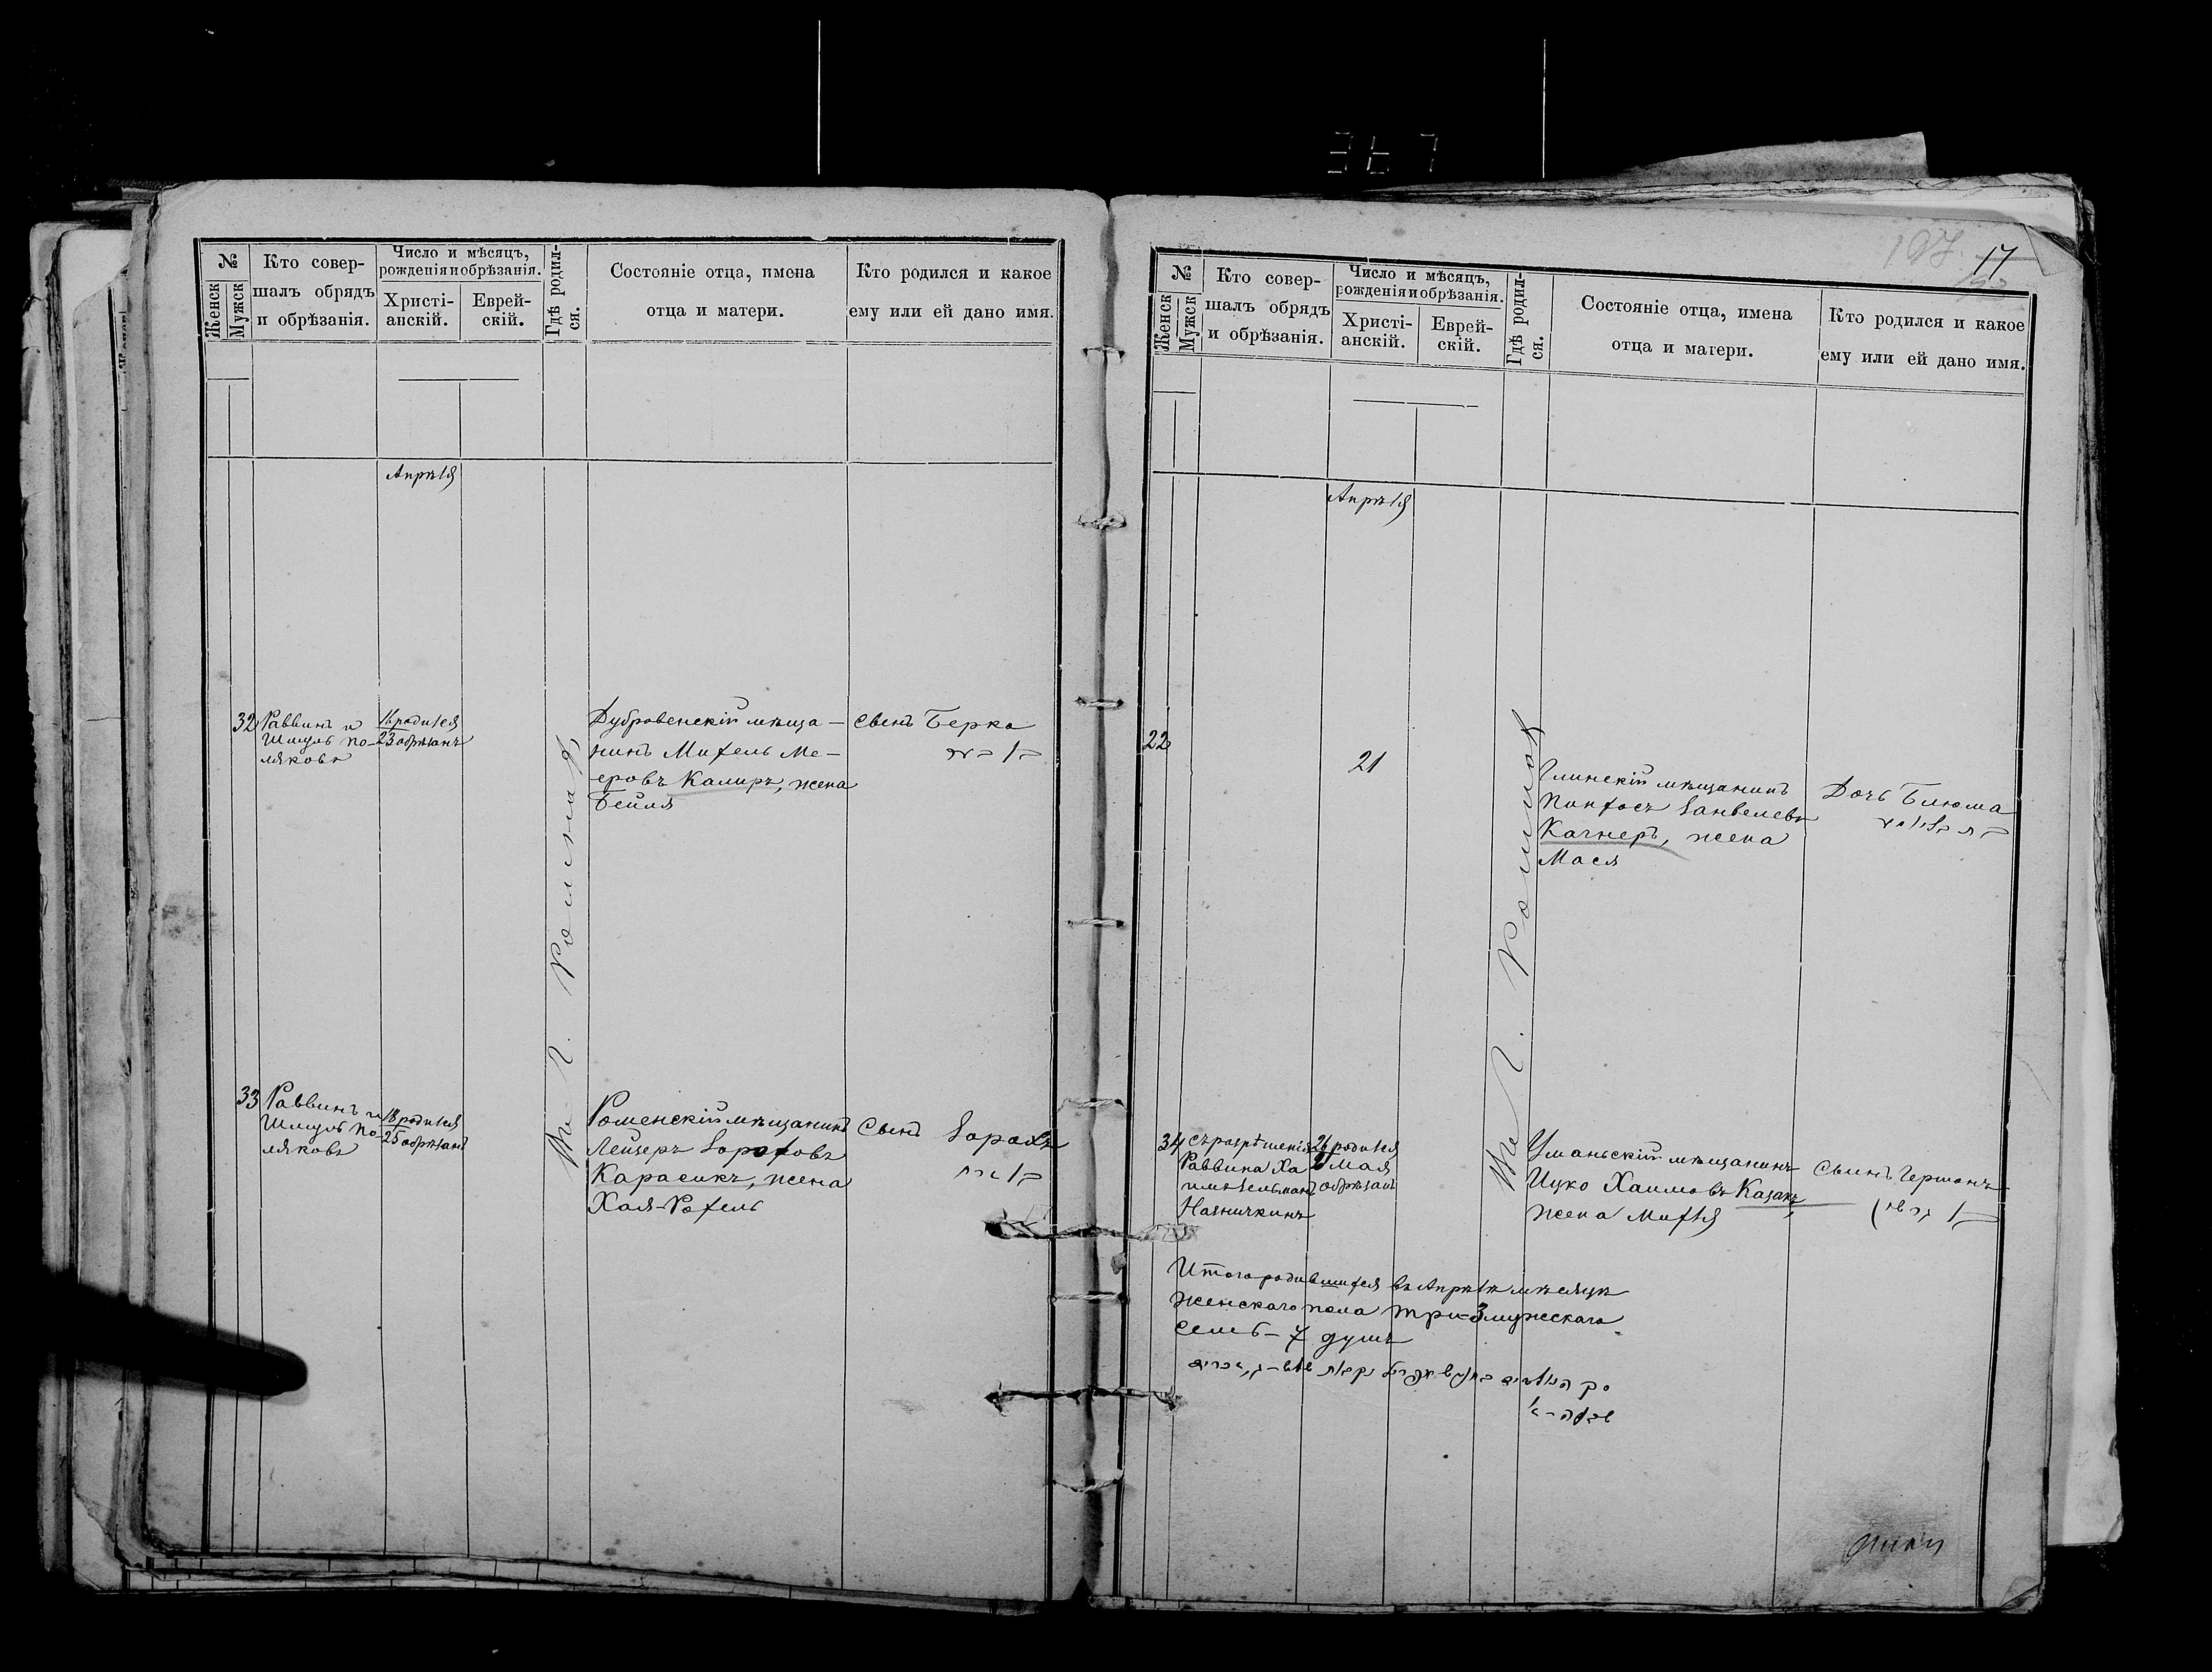 №
Женск
Мужск
Кто совер-
шалъ обрядъ
и обрѣзанія.
Число и мѣсяцъ,
рожденія и обрѣзанія.
Христі-
анскій.
Еврей-
скій.
Гдѣ родил-
ся.
Состояніе отца, имена
отца и матери.
Кто родился и какое
ему или ей дано имя.
Апрѣля
32
Раввинъ и
Шмуль По-
ляковъ
16 родился
23 обрѣзанъ
Дубровенскій мѣща-
нинъ Михель Ме-
еровъ Калиръ, жена
Бейля
Сынъ Берка
33
Раввинъ и
Шмуль По-
ляковъ
18 родился
25 обрѣзанъ
Роменскій мѣщанинъ
Лейзеръ Бороховъ
Карасикъ, жена
Хая-Рохель
Сынъ Борохъ
ברוך
Въ г. Ромнахъ
17
№
Женск
Мужск
Кто совер-
шалъ обрядъ
и обрѣзанія.
Число и мѣсяцъ,
рожденія и обрѣзанія.
Христі-
анскій.
Еврей-
скій.
Гдѣ родил-
ся.
Состояніе отца, имена
отца и матери.
Кто родился и какое
ему или ей дано имя.
Апрѣля
22
21
Глинскій мѣщанинъ
Пинхосъ Занвелевъ
Качнеръ, жена
Мася
Дочь Блюма
34
Съ разрѣшенія
Раввина Ха
Назничкинъ
26 родился
Мая
обрѣзанъ
Уманьскій мѣщанинъ
Ицко Хаимовъ Казакъ,
жена Михля
Сынъ Гершонъ
Въ г. Ромнахъ
Итого родившихся въ Апрѣлѣ мѣсяцѣ
женскаго пола три-3 мужескаго
семь-7 душъ